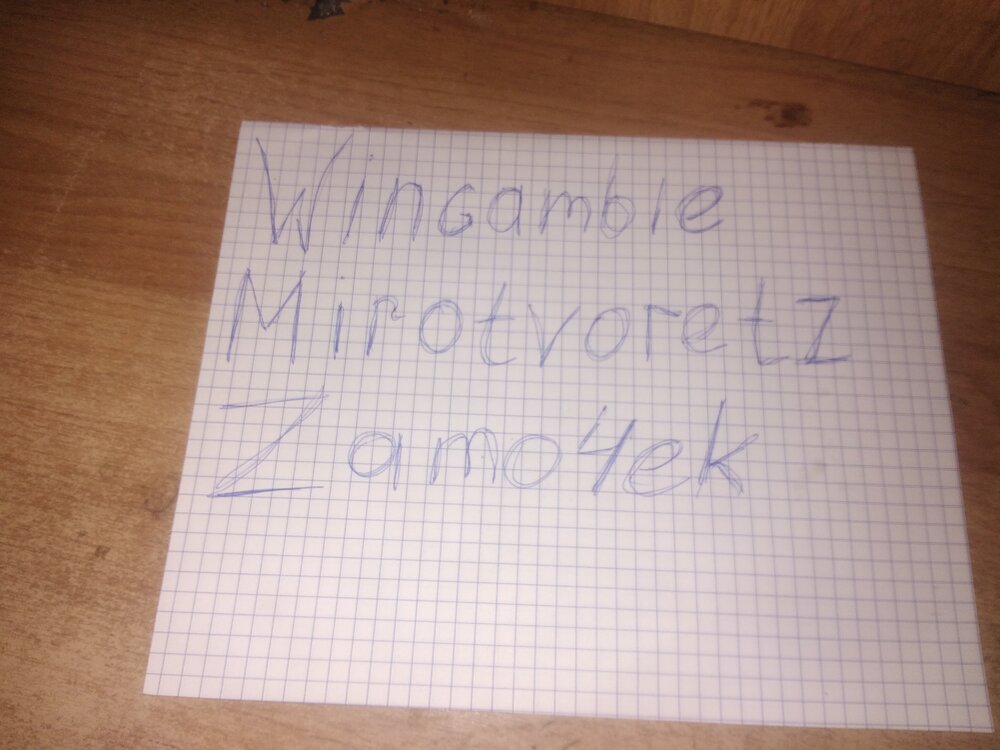 WinGamble
Mirotvoretz
Zamo4ek